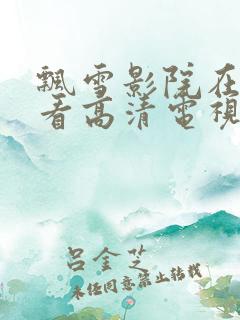 飄雪影院在
看高清電視
呂金芝
未经同意禁止转载